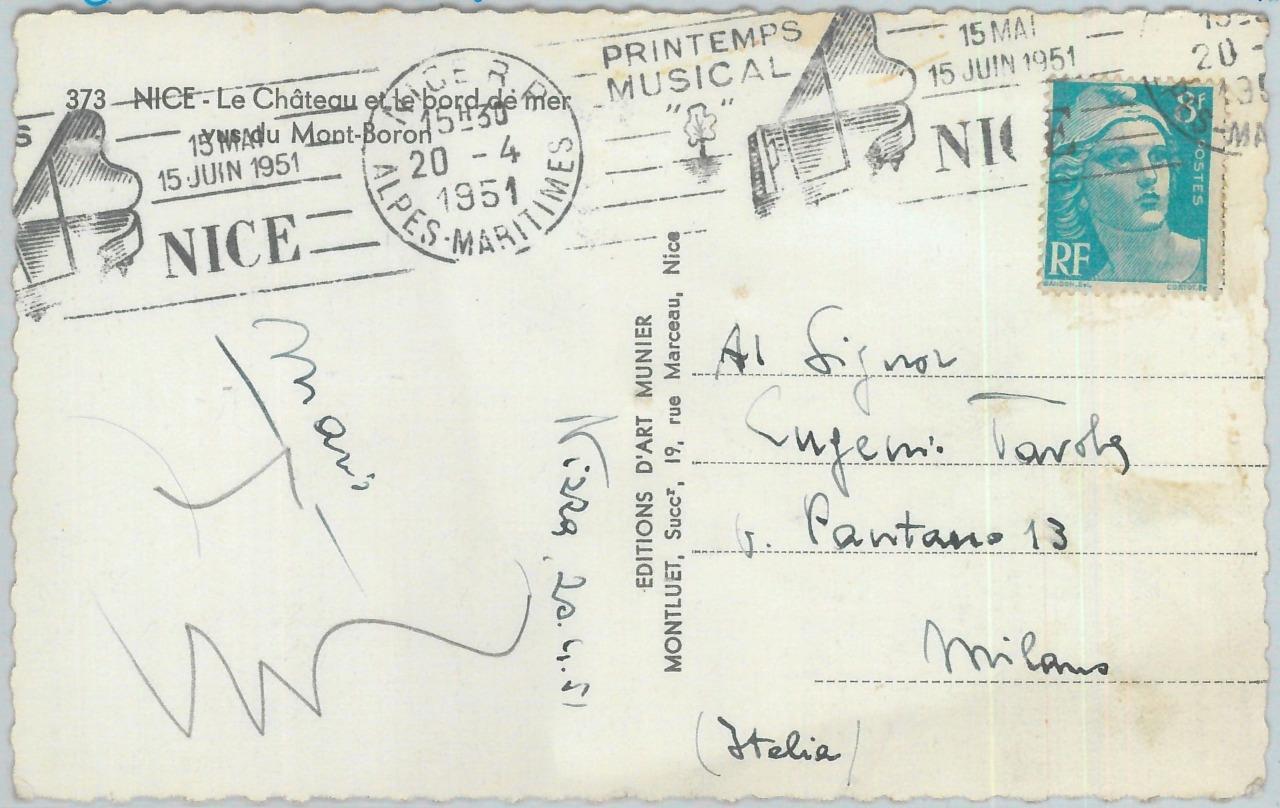 373 - NICE - Le Château et le bord de mer
vus du Mont-Boron
S
15 MAI
15 JUIN 1951
NICE
NICE R.P.
15H30
20 - 4
1951
ALPES-MARITIMES
PRINTEMPS
MUSICAL
15 MAI
15 JUIN 1951
NICE
20 -
8F
POSTES
RF
GANDON. DEL
Al Signor
Eugenio Tavola
v. Pantano 13
Milano
(Italia)
EDITIONS D'ART MUNIER
MONTLUET, Succr, 19, rue Marceau, Nice
Nizza, 20.4.51